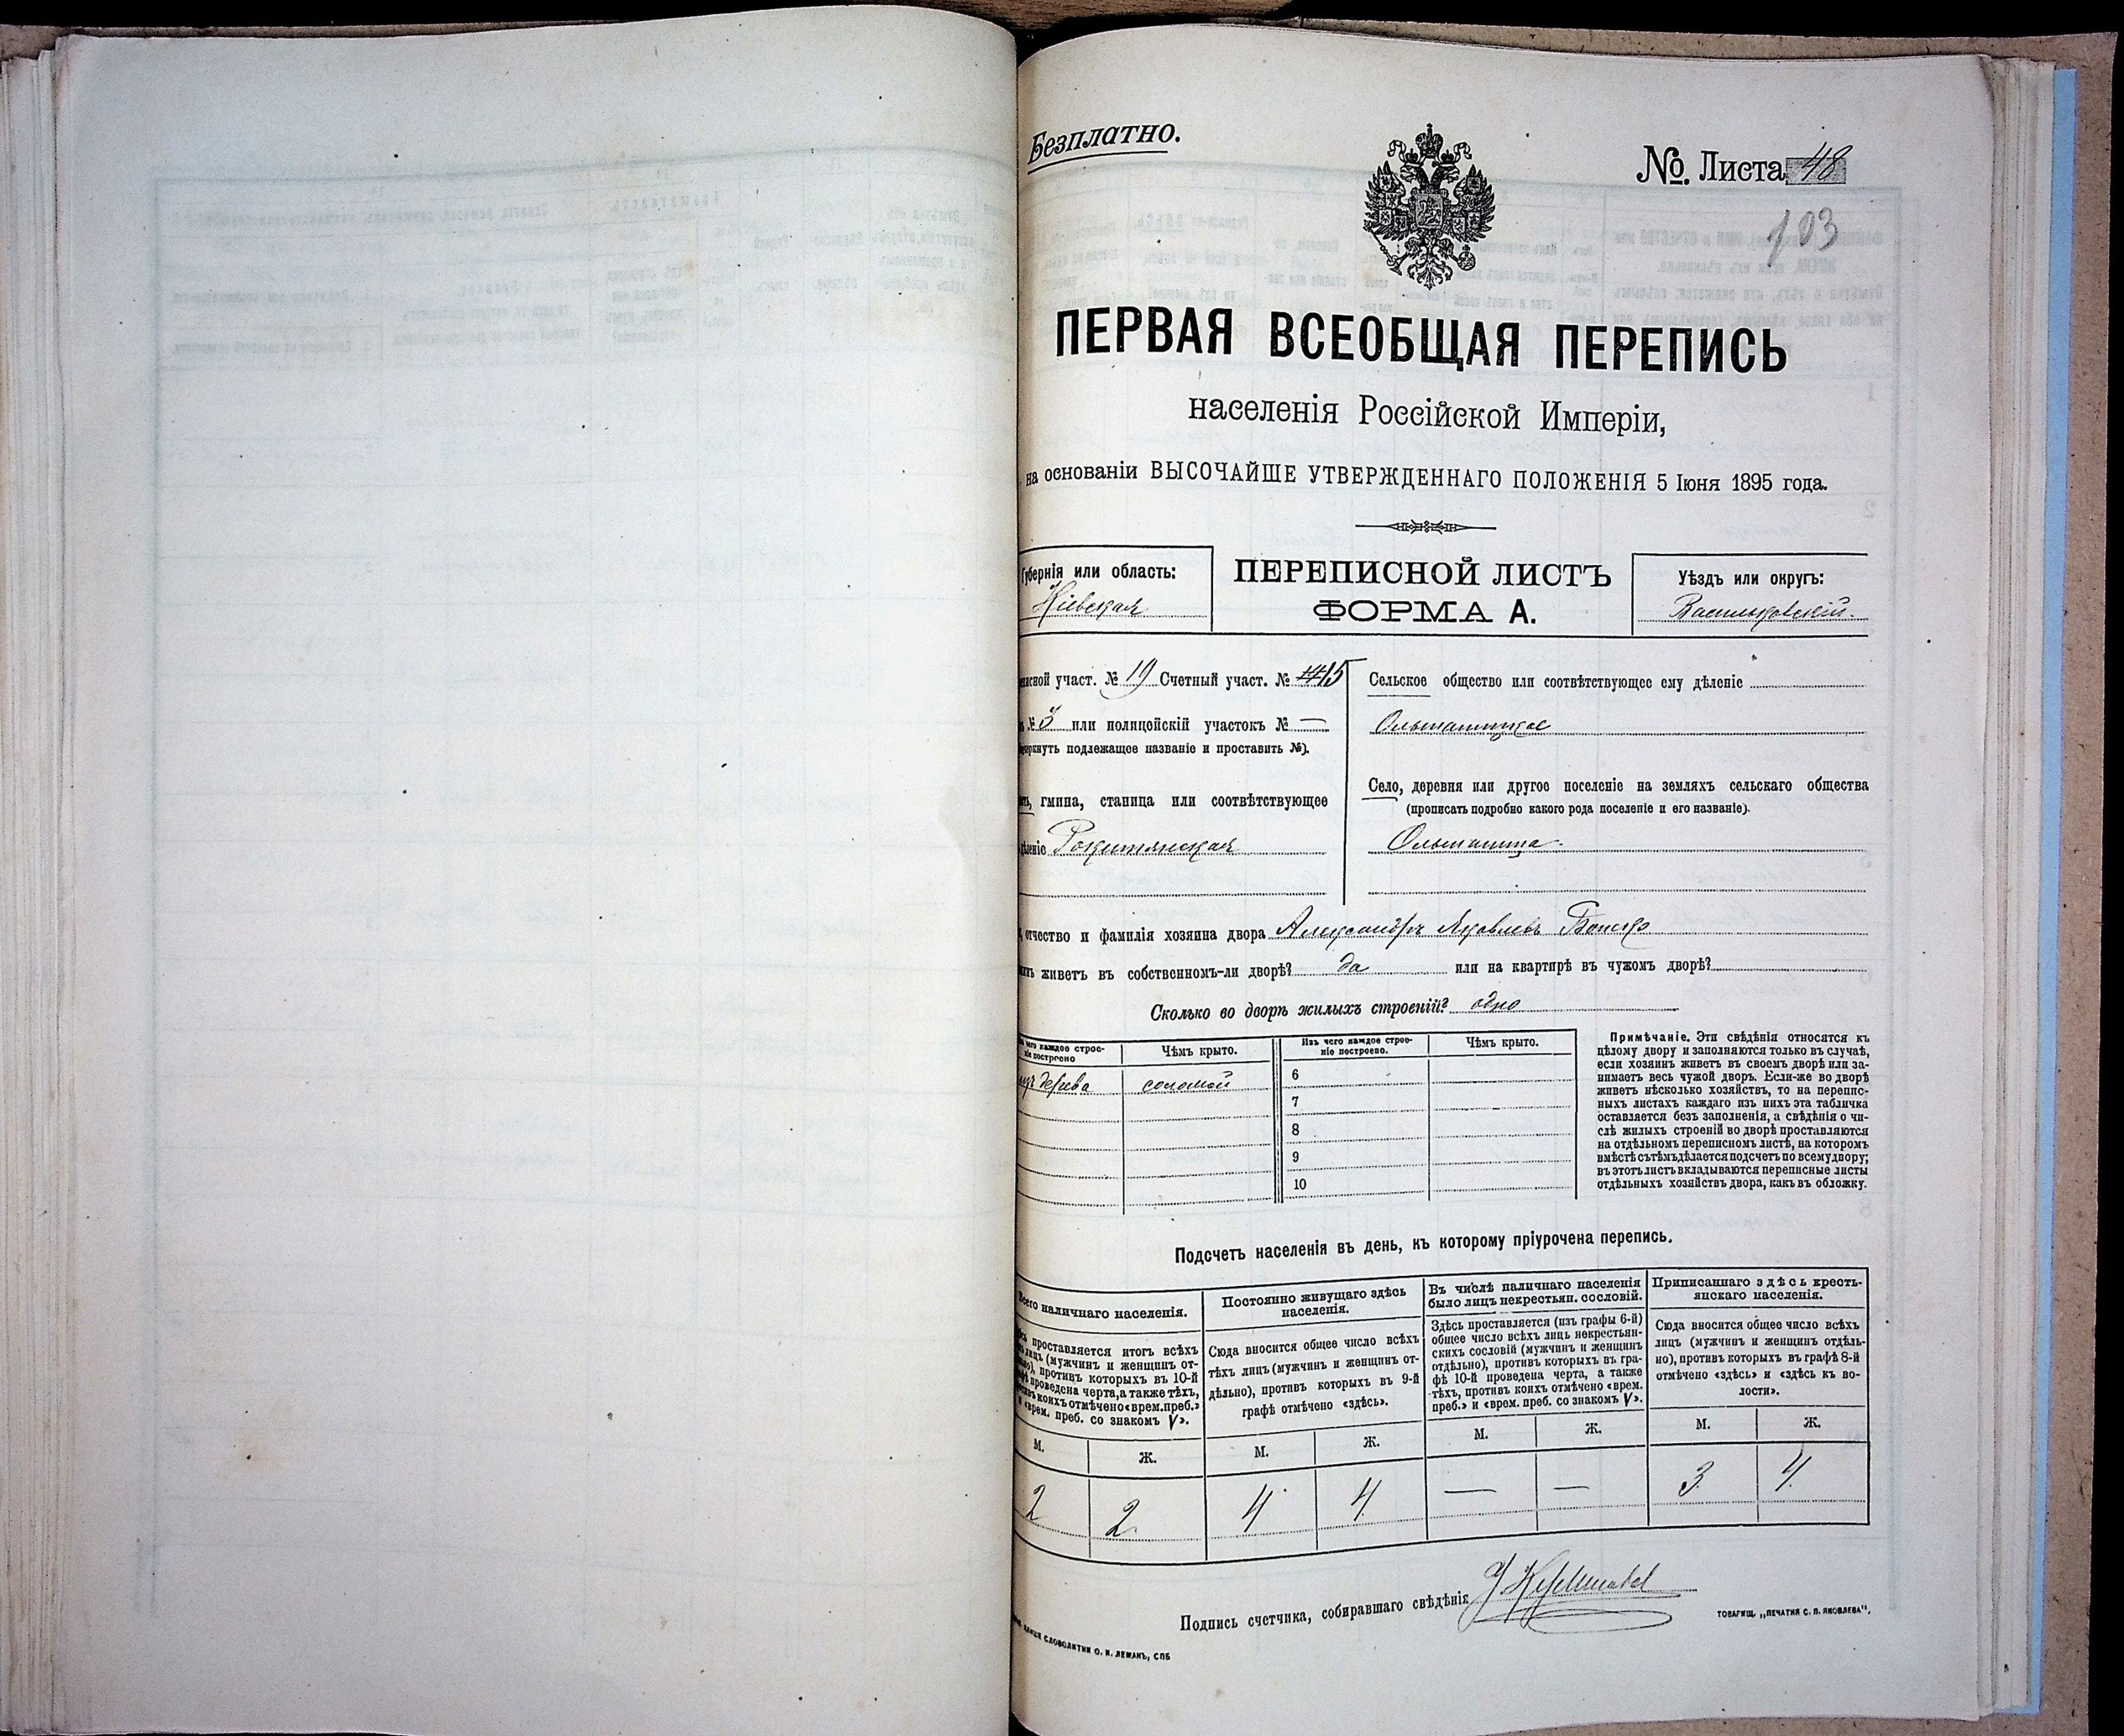 Безплатно.
№ Листа 48
103
ПЕРВАЯ ВСЕОБЩАЯ ПЕРЕПИСЬ
населенія Россійской Имперіи,
на основаніи ВЫСОЧАЙШЕ УТВЕРЖДЕННАГО ПОЛОЖЕНІЯ 5 Іюня 1895 года.
Губернія или область:
Кіевская
ПЕРЕПИСНОЙ ЛИСТЪ
ФОРМА А.
Уѣздъ или округъ:
Васильковскій.
писной участ. № 19 Счетный участ. № 15
№ 3 или полицейскій участокъ № —
черкнуть подлежащее названіе и проставить №).
гмина, станица или соотвѣтствующее
дѣленіе Рокитянская
Сельское общество или соотвѣтствующее ему дѣленіе
Ольшаницкое
Село, деревня или другое поселеніе на земляхъ сельскаго общества
(прописать подробно какого рода поселеніе и его названіе).
Ольшаница.
отчество и фамилія хозяина двора Александръ Яковлевъ
живетъ въ собственномъ-ли дворѣ? да или на квартирѣ въ чужомъ дворѣ?
Сколько во дворѣ жилыхъ строеній? одно
чего каждое строе-
ніе построено
Чѣмъ крыто.
изъ дерева соломой
Изъ чего каждое строе-
ніе построено.
Чѣмъ крыто.
6
7
8
9
10
Примѣчаніе. Эти свѣдѣнія относятся къ
цѣлому двору и заполняются только въ случаѣ,
если хозяинъ живетъ въ своемъ дворѣ или за-
нимаетъ весь чужой дворъ. Если-же во дворѣ
живетъ нѣсколько хозяйствъ, то на перепис-
ныхъ листахъ каждаго изъ нихъ эта табличка
оставляется безъ заполненія, а свѣдѣнія о чи-
слѣ жилыхъ строеній во дворѣ проставляются
на отдѣльномъ переписномъ листѣ, на которомъ
вмѣстѣ съ тѣмъ дѣлается подсчетъ по всему двору;
въ этотъ листъ вкладываются переписные листы
отдѣльныхъ хозяйствъ двора, какъ въ обложку.
Подсчетъ населенія въ день, къ которому пріурочена перепись.
Всего наличнаго населенія.
проставляется итогъ всѣхъ
лицъ (мужчинъ и женщинъ от-
противъ которыхъ въ 10-й
проведена черта, а также тѣхъ,
коихъ отмѣчено «врем. преб.»
«врем. преб. со знакомъ V».
М. Ж.
2 2
Постоянно живущаго здѣсь
населенія.
Сюда вносится общее число всѣхъ
тѣхъ лицъ (мужчинъ и женщинъ от-
дѣльно), противъ которыхъ въ 9-й
графѣ отмѣчено «здѣсь».
М. Ж.
4 4
Въ числѣ наличнаго населенія
было лицъ некрестьян. сословій.
Здѣсь проставляется (изъ графы 6-й)
общее число всѣхъ лицъ некрестьян-
скихъ сословій (мужчинъ и женщинъ
отдѣльно), противъ которыхъ въ гра-
фѣ 10-й проведена черта, а также
тѣхъ, противъ коихъ отмѣчено «врем.
преб.» и «врем. преб. со знакомъ V».
М. Ж.
— —
Приписаннаго здѣсь кресть-
янскаго населенія.
Сюда вносится общее число всѣхъ
лицъ (мужчинъ и женщинъ отдѣль-
но), противъ которыхъ въ графѣ 8-й
отмѣчено «здѣсь» и «здѣсь къ во-
лости».
М. Ж.
3 4
Подпись счетчика, собиравшаго свѣдѣнія
СЛОВОЛИТНИ О. И. ЛЕМАНЪ, СПБ
ТОВАРИЩ. „ПЕЧАТНЯ С. П. ЯКОВЛЕВА".